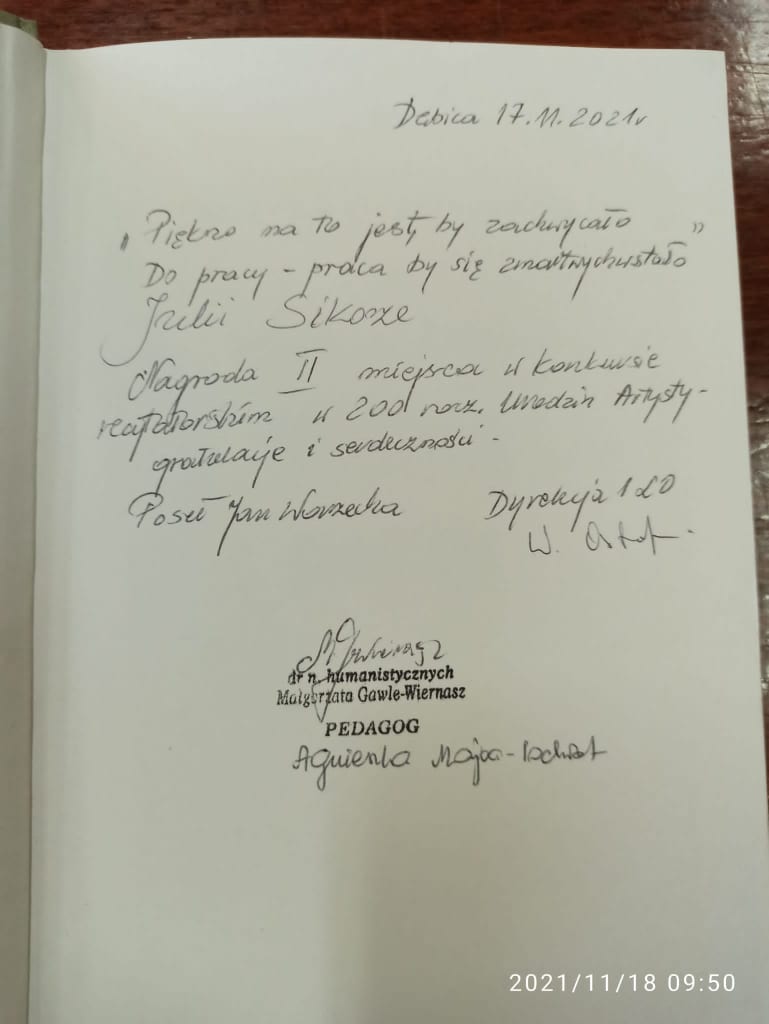 Dębica 17.11.2021r
„Piękno na to jest, by zachwycało
Do pracy – praca by się zmartwychwstało”
Julii Sikorze
Nagroda II miejsca w konkursie
recytatorskim w 200 rocz. Urodzin Artysty-
gratulacje i serdeczności -
Poseł Jan Warzecha Dyrekcja 1 LO
W.
dr n. humanistycznych
Małgorzata Gawle-Wiernasz
PEDAGOG
Agnieszka
2021/11/18 09:50